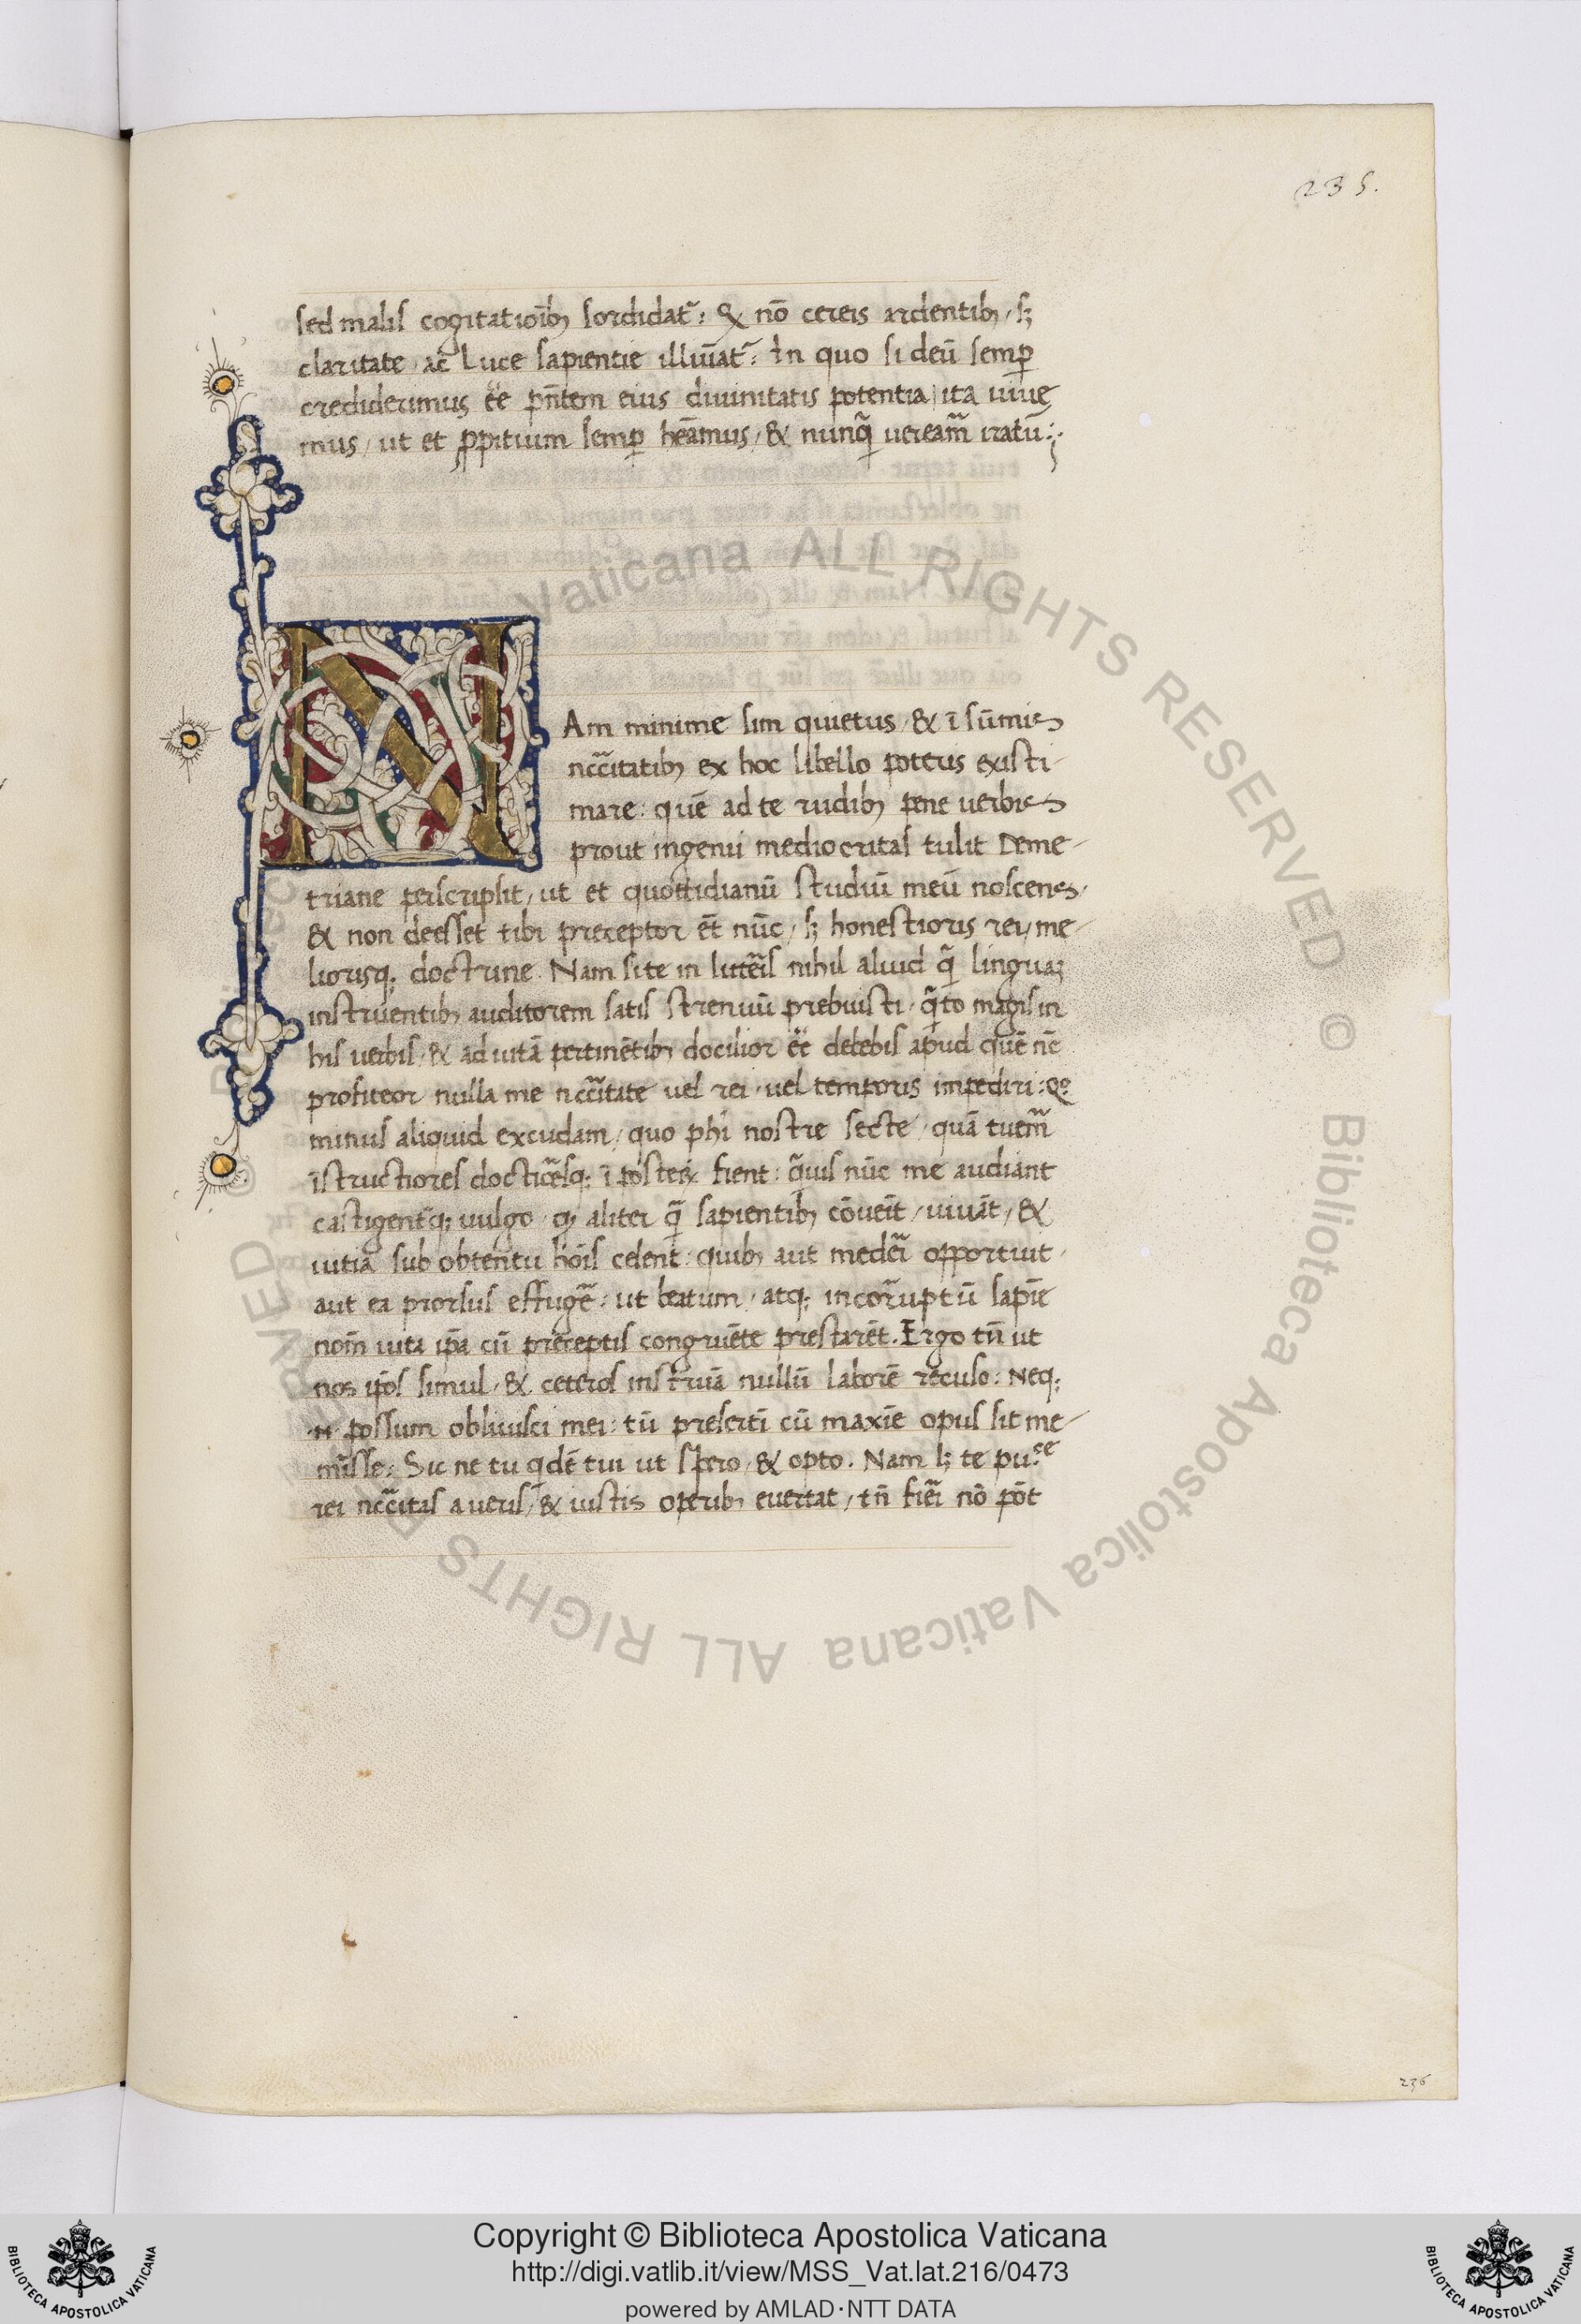 235.
sed malis cogitatioıb⁊ sordidat᷑: & nō cereis ardentib⁊, s⁊
claritate, ac Luce sapientie illuīat᷑: In quo si deū semꝑ
crediderimus eē pn̄tem eius diuinitatis potentia, ita uiue
mus, ut et ꝓpitium semꝑ heāmus, & nunq̄ ueream̄ iratū:
Am minime sim quietus, & ī sūmis
nccītatib⁊ ex hoc libello poteris existi-
mare: quē ad te rudib⁊ pene uerbis
prout ingenii mediocritas tulit Deme-
triane perscripsit, ut et quottidianū studiū meū nosceres,
& non deesset tibi preceptor ēt nūc, s⁊ honestioris rei, me-
liorisq; doctrine. Nam si te in litēis nihil aliud q̄ linguaꝫ
instruentib⁊ auditorem satis strenuū prebuisti, q̄to magis in
his uerbis, & ad uitā pertinētib⁊ docilior eē debebis apud quē nc̄
profiteor nulla me nccītate uel rei, uel temporis impediri: qo
minus aliquid excudam, quo phi nostre secte, quā tuem̄
īstructiores doctioēsq; ī posteꝝ fient: q̄uis nūc me audiant
castigentq; uulgo, ꝙ aliter q̄ sapientib⁊ cōueīt, uiuāt, &
uitia sub obtentu nōis celent: quib⁊ aut medēi opportuit,
aut ea prorsus effugē: ut beatum, atq; incorruptū sapīe
nom̄ uita ip̄a cū preceptis congruēte prestarēt. Ergo tn̄ ut
nos ip̄os simul, & ceteros instruā nullū laborē recuso: Neq;
.n. possum obliuisci mei: tū presertī cū maxīe opus sit me-
mīsse: Sic ne tu qdē tui ut spero, & opto. Nam l⁊ te pu.ce
rei nccītas a ueris, & iustis operib⁊ euertat, tn̄ fiēi nō pōt
236
Vaticana ALL RIGHTS RESERVED © Biblioteca Apostolica Vaticana ALL RIGHTS
Copyright © Biblioteca Apostolica Vaticana
http://digi.vatlib.it/view/MSS_Vat.lat.216/0473
powered by AMLAD·NTT DATA
BIBLIOTECA APOSTOLICA VATICANA
BIBLIOTECA APOSTOLICA VATICANA